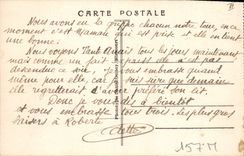 CARTE POSTALE
Nous avons eu la grippe chacun notre tour, en ce
moment c'est Maman qui est prise et elle en tient
une bonne.
nous voyons Tante tous les jours maintenant
mais comme un fait elle n'est pas
descendue ce soir, je vous embrasse quand
même pour elle, sûre que demain
elle regretterait d'avoir préféré son lit.
Donc je vous dis à bientôt
et vous embrasse tous trois. Les plus gros
baisers à Roberte
1577